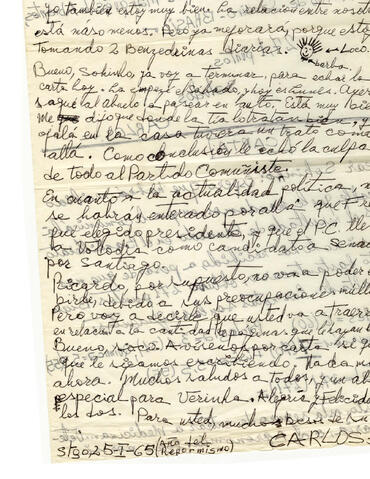 también esty muy bien. la relación entre
está más o menos. Pero ya mejorará, porque estoy
Tomando 2 Benzedrinas diarias. ← Loco.
barba
Bueno, Sobrinho, ya voy a terminar, para echar la
carta hoy. La empecé el sábado, y hoy es lunes. Ayer
saqué al abuelo a pasear en auto. Está muy
Me dijo que donde la tía lo tratan bien, y
ojalá en la casa tuviera un trato como
allá. Como conclusión le echó la culpa
de todo al Partido Comuñiste.
En cuanto a la actualidad política, 
se habrán enterado por allá que
que elegido presidente, y que el P.C.
la Volodia como candidato a
por Santiago.
Ricardo, por supuesto, no va a poder
debido a sus preocupaciones
Pero voy a decirle que usted va a traer
en relación a la cantidad de
Bueno, saca Avósenos por carta si
que le sigamos escribiendo.
ahora. Muchos saludos a Todos, y un
especial para Verinha. Alegría y
los dos. Para usted, muchos besos de
Stgo 25-I-65 (Año del Reformismo)
CARLOS